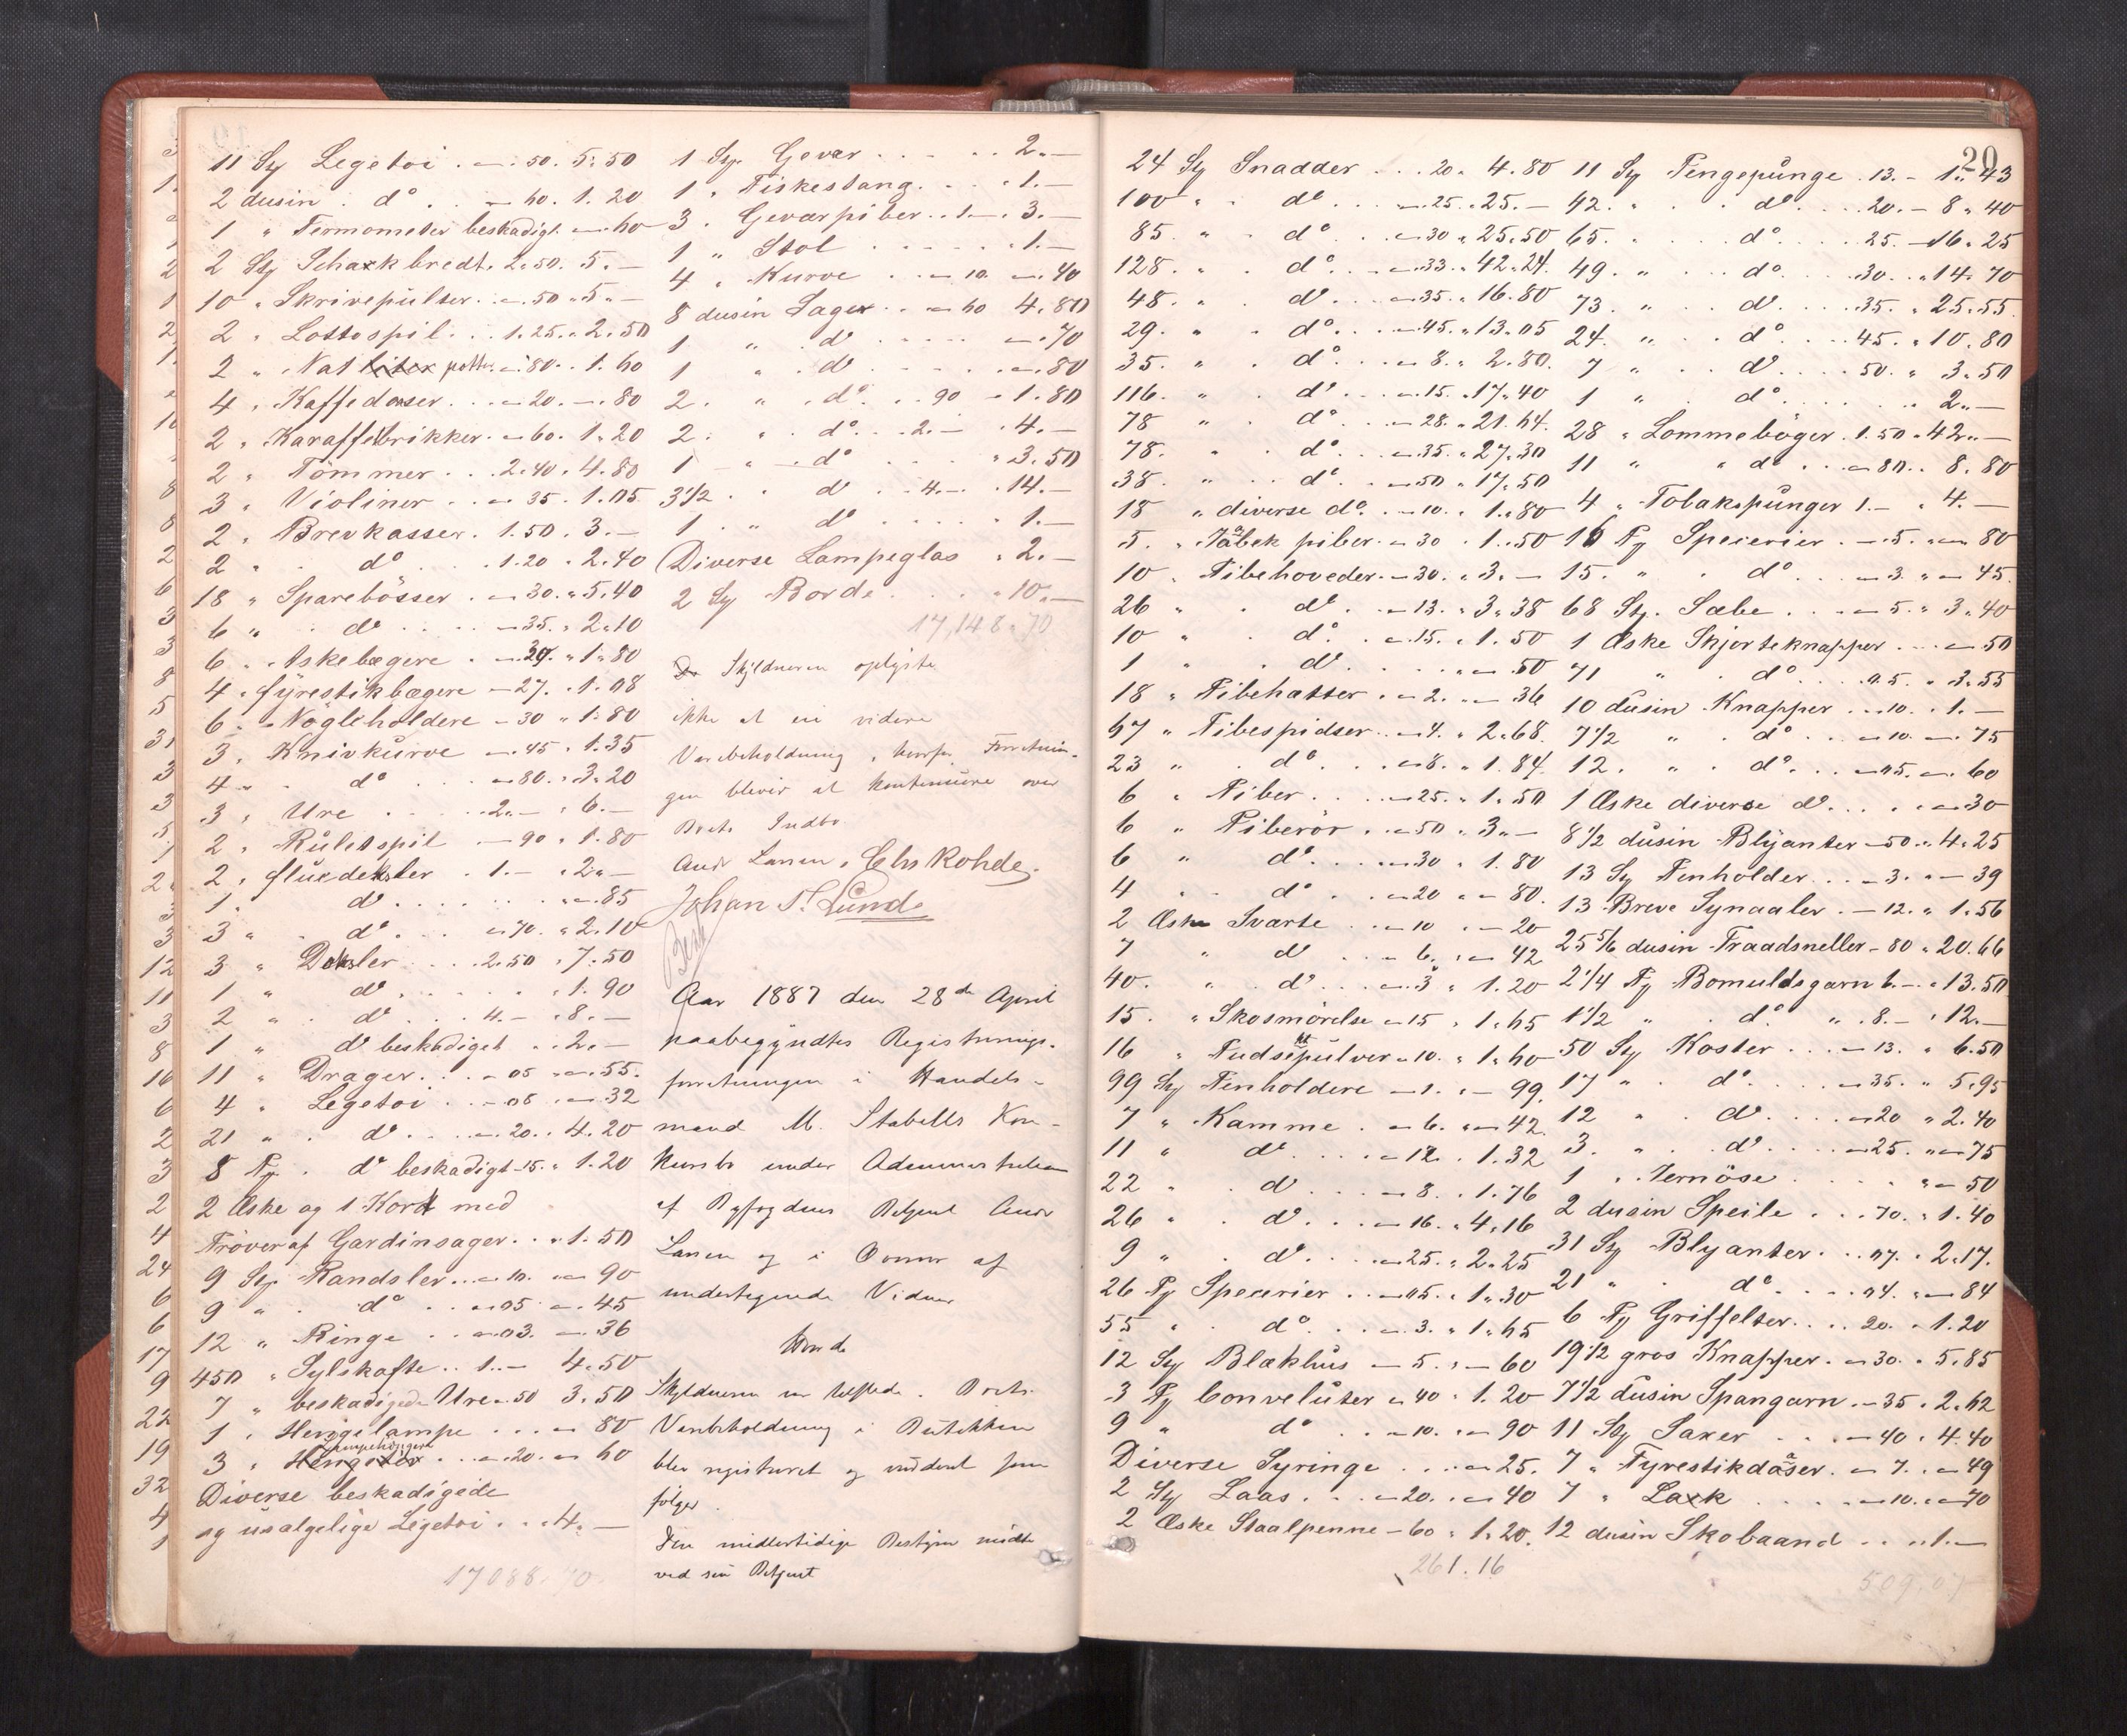 11 Sty Legetöi . — . 50 . 5 . 50
2 dusin . do . . — 60 . 1 . 20
1 " Termometer beskadigt — 60
2 Sty Schakbredt . 2.50 . 5 . —
10 " Skrivepulter . — . 50 " 5 " —
2 " Lottospil . . 1.25 . 2.50
2 " Nat potte . — 80 . . 1.60
4 " Kaffedaaser . . — 20 . — . 80
2 " Karaffelbrikker . — 60 . 1.20
2 " Tömmer . . 2.40 . 4.80
3 " Violiner . . — 35 . 1.05
2 " Brevkasser . 1.50 . 3 . —
2 " . do . . 1.20 . 2.40
18 " Sparebösser . — 30 . " 5.40
6 " . do . . . — 35 . " 2.10
6 " Askebægere . — 30 . " 1.80
4 " Fyrestikbægere — 27 . . 1.08
6 " Nögleholdere — 30 " 1.80
3 " Knivkurve — 45 . 1.35
4 " . do . . — 80 . . 3.20
3 " Ure . . . 2 . — . 6 . —
2 " Ruletspil — 90 . 1.80
2 " . 1 . — . 2 . —
1 " do . . . . . . — . 85
3 " . do . . . — 70 . " 2.10
3 " Deksler . . . 2.50 . 7.50
1 " do . . . . . 1.90
2 " . do . . . 4 . — . 8 . —
1 " do beskadiget . . 2 . —
11 " Drager . . . — 05 . — . 55 .
4 " Legetöi . . — 08 . — 32
21 " . do . . . — 20 . . 4.20
8 Py . do beskadigt — 15 . " 1.20
2 Æske og 1 Kort med
Pröver af Gardinsager . . . 1.50
9 Sty Randsler . . — 10 . — 90
9 " . do . . — 05 . — . 45
12 " Ringe . . — 03 . — . 36
450 " Sylskafte . . 1 . — 4.50
7 " beskadigede Ure — 50 3.50
1 " Hengelampe . . . — 80
3 " Lampehengere . . — 20 . — 60
Diverse beskadigede
og usalgelige Legetöi . . . 4 . —
17088.70
1 Sty Gevær . . . . 2 . —
1 " Fiskestang . . . 1 . —
3 " Geværpiber . . 1 . — . 3 . —
1 " Stol . . . . . 1 . —
4 " Kurve . . — 10 . — . 40
8 dusin Sager . . — 60 4.80
1 " . do . . . . — . 70
1 " . do . . . . . — . 80
2 " . do . . 90 . 1.80
2 " . do . . . 2 . — . 4 . —
1 " . do . . . . 3.50
3 1/2 " . do . . 4 . — . 14 . —
1 " " do . . . . . 1 . —
Diverse Lampeglas . 2 . —
2 Sty Borde . . . . 10 . —
17,148.70
Skyldneren oplyste
ikke at eie videre
Varebeholdning, hvorfor Forretnin-
gen blever at kontinuere over
Boets Indbo
Andr Larsen . Chr Rohde .
Johan S. Lunde
Aar 1887 den 28de April
paabegyndtes Registrerings-
forretningen i Handels-
mand M. Stabells Kon-
kursbo under Administration
af Byfogdens Betjent Andr
Larsen og i Overvær af
undertegnede Vidner
Skyldneren var tilstede . Boets
Varebeholdning i Butikken
blev registreret og vurderet som
følger
Den midlertidige Bestyrer mødte
ved sin Betjent
20
24 Sty Snadder . . . 20 . 4.80
100 " . do . . . — 25 . . 25 . —
85 . " . do . . . — 30 . 25.50
128 . " . do . . . — 33 . " 42.24 .
48 . " . do . . . — 35 . " 16.80
29 . " . do . . . — 45 . " 13.05
35 . " . do . . . — 8 . " 2.80 .
116 . " . do . . . — 15 . . 17.40
78 " . do . . . — 28 . " 21.64 .
78 . " . do . . . — 35 . " 27.30
38 . " . do . . . — 50 . 17.50
18 " diverse do . . — 10 . . 1.80
5 . " Tabak piber . — 30 . 1.50
10 . Pibehoveder . — 30 . . 3 . —
26 " . do . . — 13 . . 3.38
10 " . do . . — 15 . . 1.50
1 " . do . . . . . — . 50
18 " Pibehatter . . — 2 . . — 36
67 " Pibespidser . . — 4 . . 2.68 .
23 " . do . . . — 8 . " 1.84 .
6 " Piber . . . — 25 . " 1.50
6 " Piberör . . — 50 . 3 . —
6 " do . . . — 30 . 1.80
4 . . do . . — 20 . — 80 .
2 Æske Sværte . . — 10 . — 20
7 " do . . — 6 . . — 42
40 . " . do . . . — 3 " 1.20
15 . " Skosmörelse — 15 . 1.65
16 " Pudsepulver — 10 . " 1.60
99 Sty Penholdere — 1 . . — 99 .
7 " Kamme . — 6 . . — 42 .
11 " do . . . — 12 . . 1.32
22 " . do . . . — 8 . . 1.76
26 " . do . . . — 16 . " 4.16
9 " . do . . . — 25 . " 2.25
26 Py Specerier . . — 05 . " 1.30
55 " . do . . . — 3 . " 1.65
12 Sty Blækhus — 5 . . — 60
3 Py Convoluter — 40 . 1.20
9 " do . . — 10 . . — 90
Diverse Syringe . . . — 25 .
2 Sty Laas . . . — 20 . . — 40
2 Æske Staalpenne — 60 . 1.20 .
261.16
11 Sty Pengepunge . 13 . — 1.43
42 . " . . do . . . 20 . — 8 . 40
65 . " . . do . . . 25 . — 16 . 25
49 . " . . do . . . 30 . . 14 . 70
73 . " . do . . . . 35 . " 25.55 .
24 . " . . do . . . 45 . " 10.80
7 " . . do . . . . 50 . " 3.50
1 " . do . . . . . 2 . —
28 " Lommebøger . 1.50 . 42 . —
11 " " do . . . — 80 . . 8.80
4 " Tobakspunger 1 . — . 4 . —
16 Py Specerier . — 5 . . — 80
15 . " . do . . . — 3 . " — 45 .
68 Sty . Sæbe . . . — 5 . " 3.40
1 Æske Skjorteknapper . . . — 50
71 " . do . . . 05 . " 3.55
10 dusin Knapper . . . 10 . . 1 . —
7 1/2 " . do . . . — 10 . — . 75
12 . " . do . . . — 05 . — . 60
1 Æske diverse do . . . . — 30
8 1/2 dusin Blyanter — 50 . . 4.25
13 Sty Penholder . . . — 3 . . — 39
13 Breve Synaaler . — 12 . " 1.56
25 5/6 dusin Traadsneller — 80 . 20.66
2 1/4 Py Bomuldsgarn 6 . — . 13.50
1 1/2 " . do " . 8 . — . 12 . —
50 Sty Koster . . . — 13 . " 6.50
17 " . do . . . . — 35 . " 5.95
12 " . do . . . . — 20 " 2.40
3 . " . do . . . . — 25 . . — 75
1 . " . . . . . . — 50
2 dusin Speile . . . 70 . . 1.40
31 Sty Blyanter . . . 07 . . 2.17 .
21 " . do . . . . 04 . . — 84
6 Py Griffelter . . . 20 . . 1.20
19 1/2 gros Knapper . — 30 . . 5.85
7 1/2 dusin Spangarn . — 35 . 2.62
11 Sty Saxer . . . — 40 . 4.40
7 " Fyrestikdaaser . — 7 . . — 49
7 " Lak . . . . — 10 . . — 70
12 dusin Skobaand . . . 1 . —
509.07